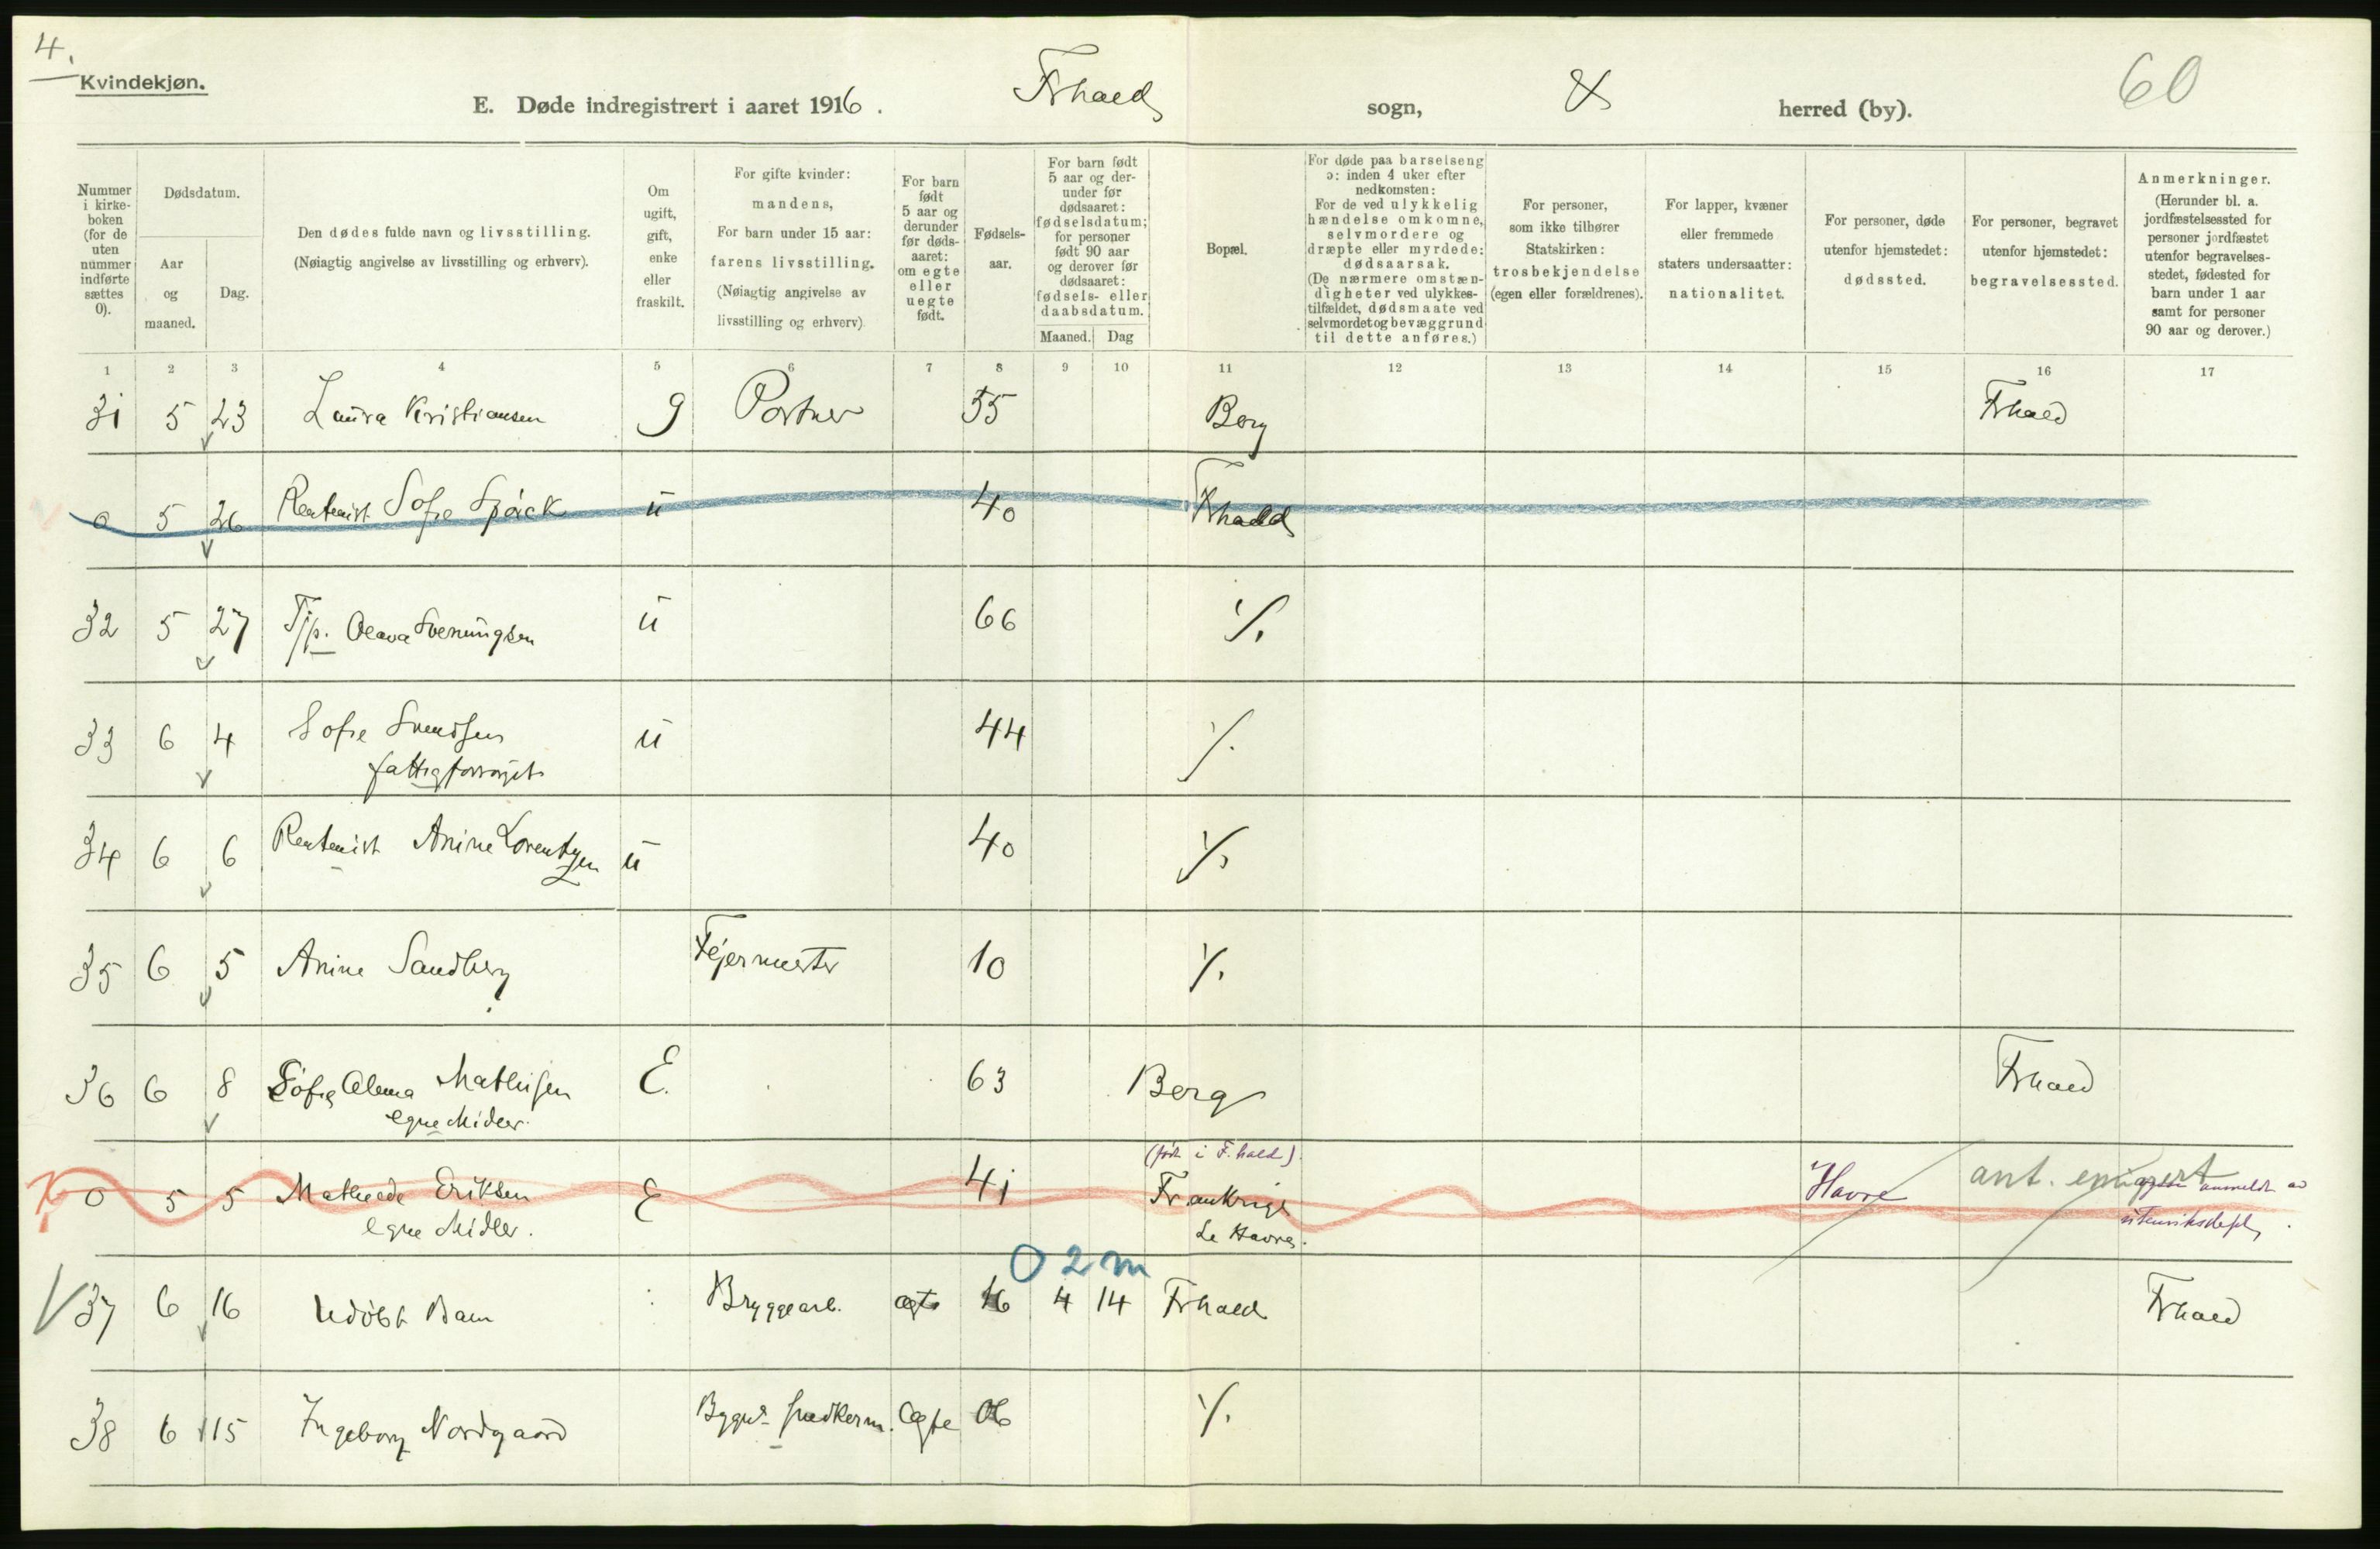 4.
Kvindekjøn.
E. Døde indregistrert i aaret 1916. Frhald sogn, & herred (by). 60
Nummer i kirkeboken (for de uten nummer indførte sættes 0).
Dødsdatum.
Aar og maaned.
Dag.
Den dødes fulde navn og livsstilling.
(Nøiagtig angivelse av livsstilling og erhverv).
Om ugift, gift, enke eller fraskilt.
For gifte kvinder: mandens,
For barn under 15 aar: farens livsstilling.
(Nøiagtig angivelse av livsstilling og erhverv)
For barn født 5 aar og derunder før dødsaaret: om egte eller uegte født.
Fødselsaar.
For barn født 5 aar og derunder før dødsaaret: fødselsdatum; for personer født 90 aar og derover før dødsaaret: fødsels- eller daabsdatum.
Maaned. Dag
Bopæl.
For døde paa barselseng ɔ: inden 4 uker efter nedkomsten:
For de ved ulykkelig hændelse omkomne, selvmordere og dræpte eller myrdede: dødsaarsak.
(De nærmere omstændigheter ved ulykkestilfældet, dødsmaate ved selvmordet og bevæggrund til dette anføres.)
For personer, som ikke tilhører Statskirken: trosbekjendelse (egen eller forældrenes).
For lapper, kvæner eller fremmede staters undersaatter: nationalitet.
For personer, døde utenfor hjemstedet: dødssted.
For personer, begravet utenfor hjemstedet: begravelsessted.
Anmerkninger.
(Herunder bl. a. jordfæstelsessted for personer jordfæstet utenfor begravelsesstedet, fødested for barn under 1 aar samt for personer 90 aar og derover.)
1 2 3 4 5 6 7 8 9 10 11 12 13 14 15 16 17
31 5 23 Laura Kristiansen g Portner 55 Berg Frhald
0 5 26 Rentenist Sofie Spóck u 40 Frhald
32 5 27 Tjp. Olava Svenungsen u 66 ⁒
33 6 4 Sofie Svendsen u 44 ⁒
fattigforsørget
34 6 6 Rentenist Anine Lorentzen u 40 ⁒
35 6 5 Anine Sandberg Fejermester 10 ⁒
36 6 8 Sofie Alma Mathisen E. 63 Berg Frhald
egne Midler.
(født i F.hald).
0 5 5 Mathilde Eriksen E 41 Frankrige Havre ant. emigrert anmeldt av
egne Midler. Le Havre. utenriksdept.
0 2 m
37 6 16 Udøbt Barn Bryggearb. ægte 16 4 14 Frhald Frhald
38 6 15 Ingeborg Nordgaard Bygn. snedkerm. Ægte 06 ⁒